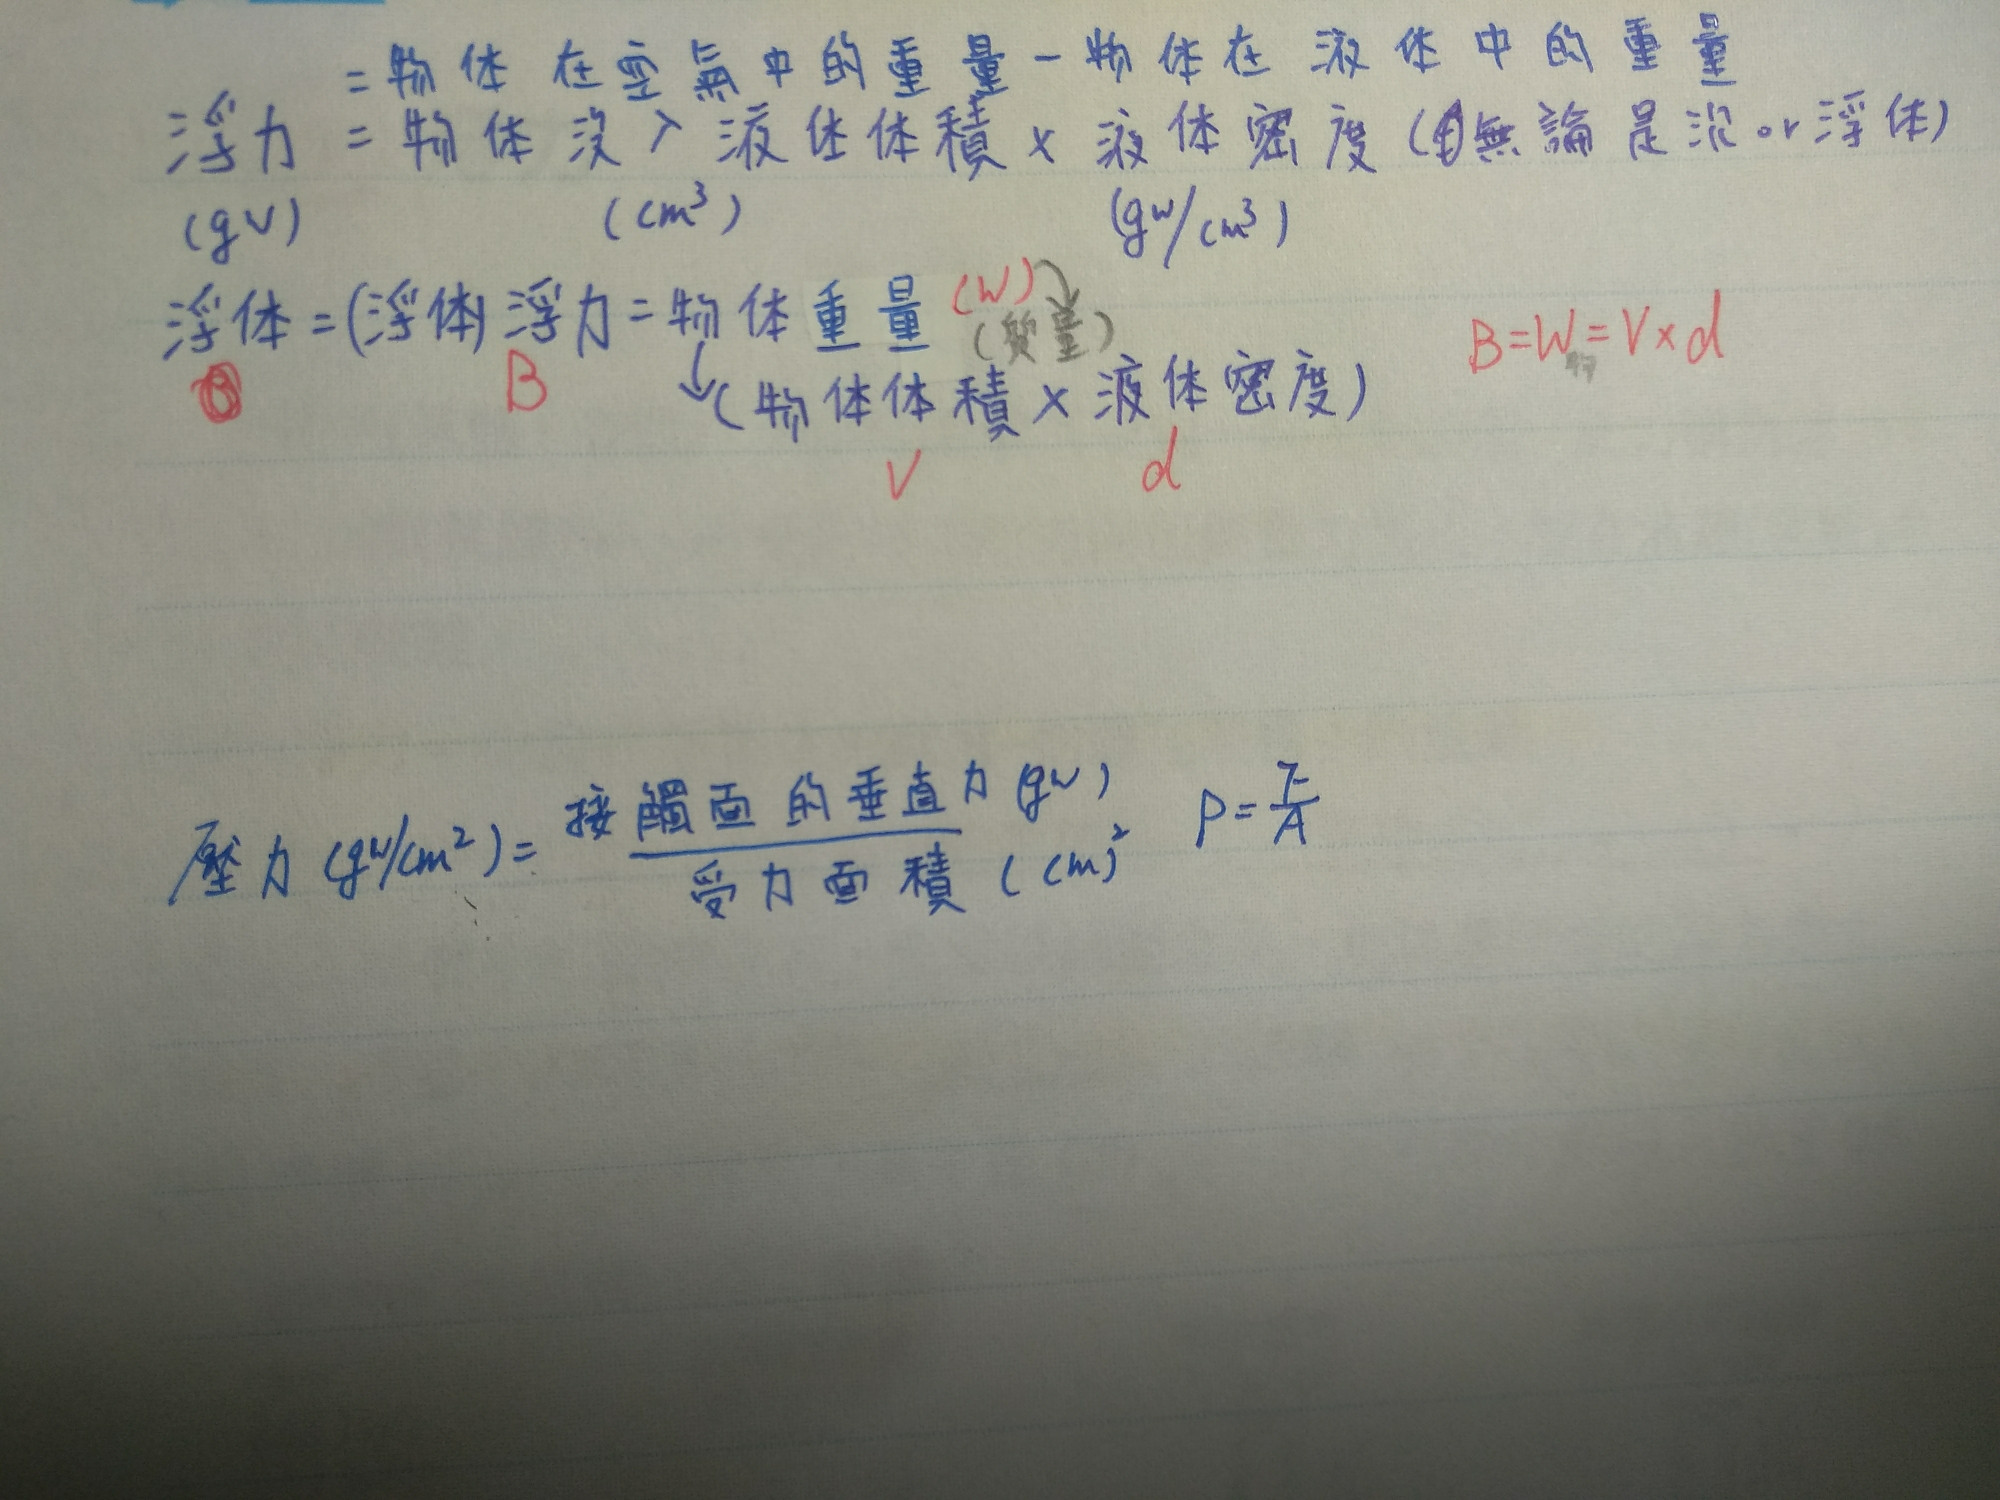 =物体在空氣中的重量-物体在液体中的重量
浮力=物体沒入液体体積×液体密度(無論是沉or浮体)
(gw) (cm³) (gw/cm³)
浮体=(浮体)浮力=物体重量(W)
(質量)
B=W物=V×d
B
↓(物体体積×液体密度)
V d
接觸面的垂直力(gw)
壓力(gw/cm²)= P=F/A
受力面積(cm)²